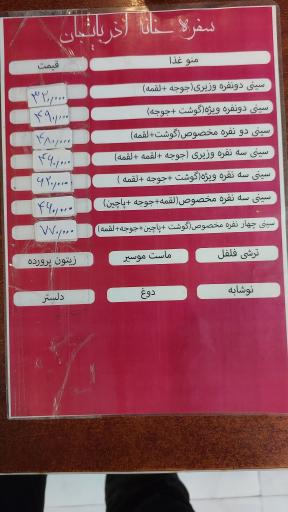 سفره خانه آذربایجان
منو غذا قیمت
سینی دونفره وزیری(جوجه +لقمه) ۳۲۰,۰۰۰
سینی دونفره ویژه(گوشت +جوجه) ۴۹۰,۰۰۰
سینی دو نفره مخصوص(گوشت+لقمه) ۴۸۰,۰۰۰
سینی سه نفره وزیری (جوجه +لقمه +لقمه)
سینی سه نفره ویژه(گوشت +جوجه +لقمه )
سینی سه نفره مخصوص(لقمه+جوجه +پاچین)
سینی چهار نفره مخصوص(گوشت +پاچین+جوجه+لقمه) ۷۷۰,۰۰۰
ترشی فلفل ماست موسیر زیتون پرورده
نوشابه دوغ دلستر